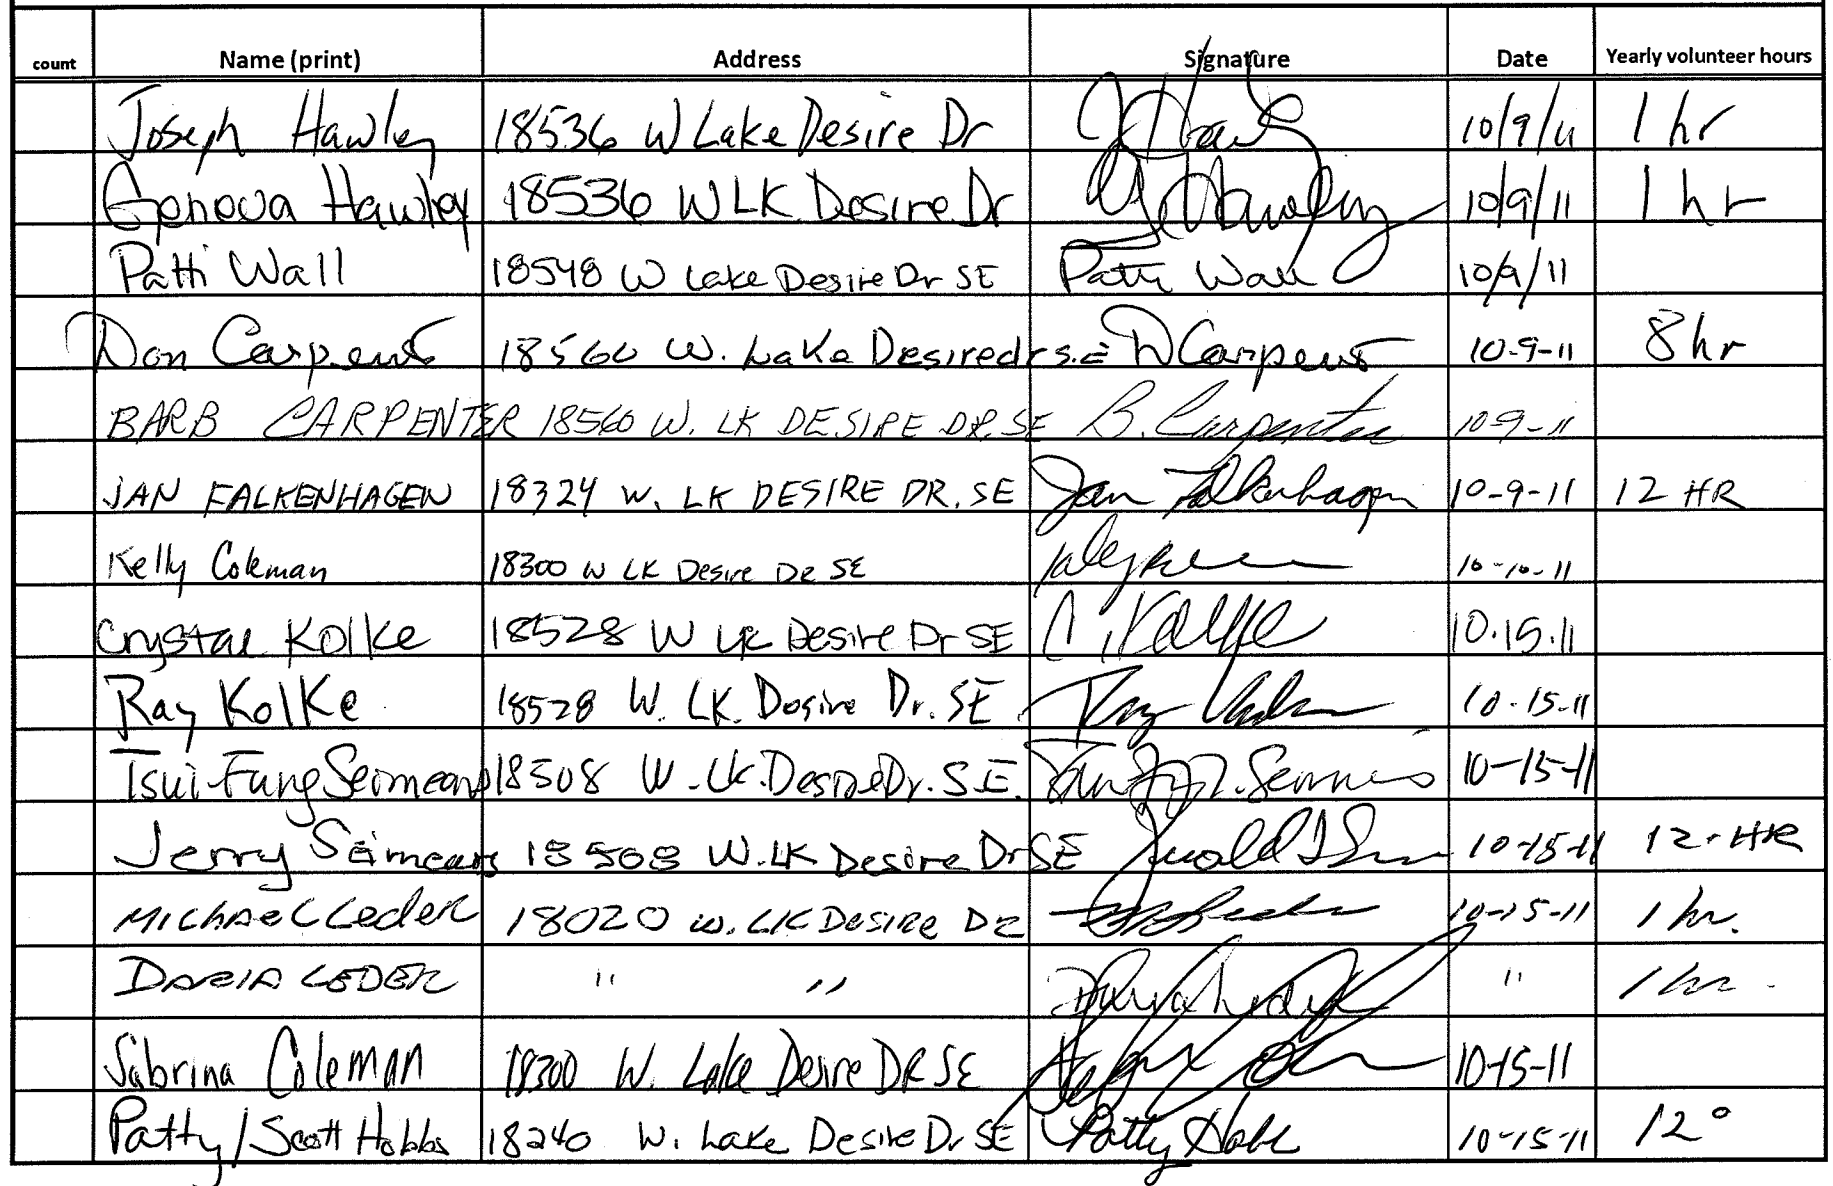 count Name (print) Address Signature Date Yearly volunteer hours
Joseph Hawley 18536 W Lake Desire Dr 10/9/11 1 hr
Geneva Hawley 18536 W LK Desire Dr G Hawley 10/9/11 1 hr
Patti Wall 18548 W Lake Desire Dr SE Patti Wall 10/9/11
Don Carpenter 18560 W. Lake Desire dr s.E D Carpenter 10-9-11 8 hr
BARB CARPENTER 18560 W. LK DESIRE DR. SE B. Carpenter 10-9-11
JAN FALKENHAGEN 18324 W. LK DESIRE DR. SE Jan Falkenhagen 10-9-11 12 HR
Kelly Coleman 18300 W LK Desire DR SE 10-10-11
Crystal Kolke 18528 W LK Desire Dr SE C Kolke 10.15.11
Ray Kolke 18528 W. LK. Desire Dr. SE Ray 10-15-11
Tsui-Fung Seimears 18508 W. LK. Desire Dr. S.E. 10-15-11
Jerry Seimears 18508 W. LK Desire Dr SE 10-15-11 12-HR
MICHAEL LedeR 18020 W. LK DESIRE DR 10-15-11 1 hr.
DARIA LEDER " " Daria Leder " 1 hr.
Sabrina Coleman 18300 W. Lake Desire DR SE 10-15-11
Patty/Scott Hobbs 18240 W. Lake Desire Dr SE Patty Hobbs 10-15-11 12°